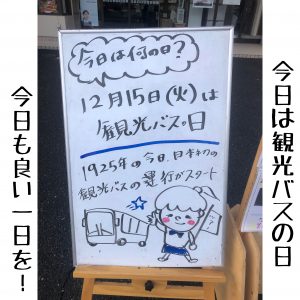 今日は観光バスの日
今日は何の日?
12月15日(火)は
観光バスの日
1925年の今日、日本初の
観光バスの運行がスタート
今日も良い一日を!